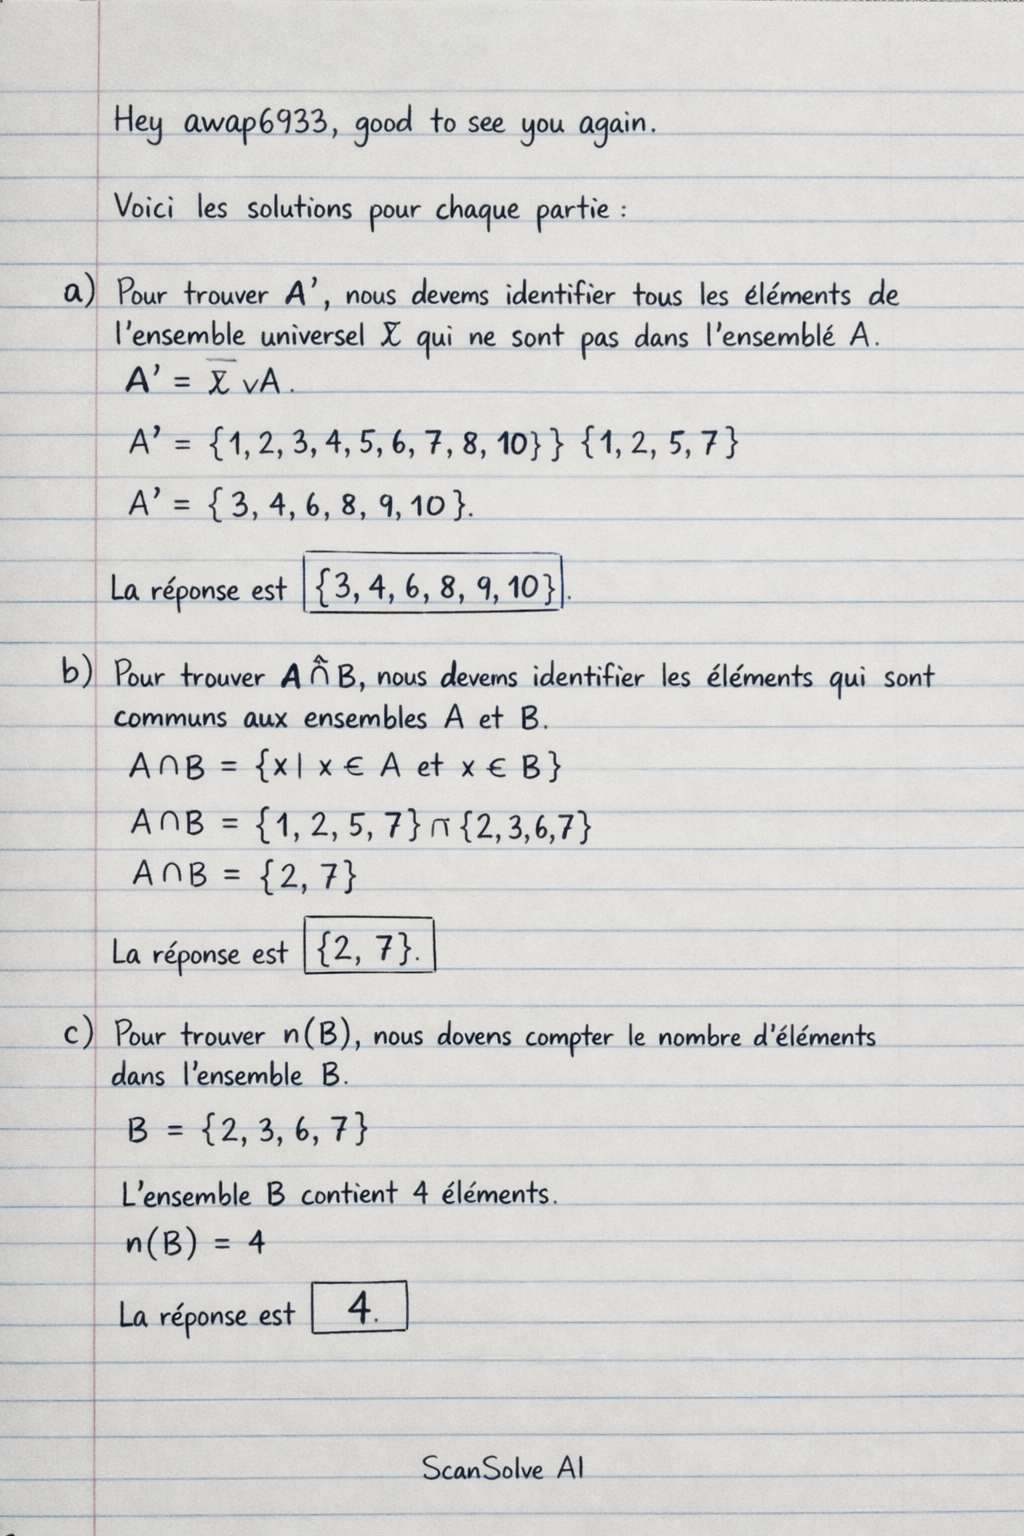 Hey awap6933, good to see you again.
Voici les solutions pour chaque partie :
a) Pour trouver A', nous devems identifier tous les éléments de
l'ensemble universel X̅ qui ne sont pas dans l'ensemblé A.
A' = X̅ ∨A.
A' = {1, 2, 3, 4, 5, 6, 7, 8, 10}} {1, 2, 5, 7}
A' = {3, 4, 6, 8, 9, 10}.
La réponse est {3, 4, 6, 8, 9, 10}.
b) Pour trouver A ∩̂ B, nous devems identifier les éléments qui sont
communs aux ensembles A et B.
A∩B = {x| x ∈ A et x ∈ B}
A∩B = {1, 2, 5, 7} ∩ {2,3,6,7}
A∩B = {2, 7}
La réponse est {2, 7}.
c) Pour trouver n(B), nous dovens compter le nombre d'éléments
dans l'ensemble B.
B = {2, 3, 6, 7}
L'ensemble B contient 4 éléments.
n(B) = 4
La réponse est 4.
ScanSolve AI